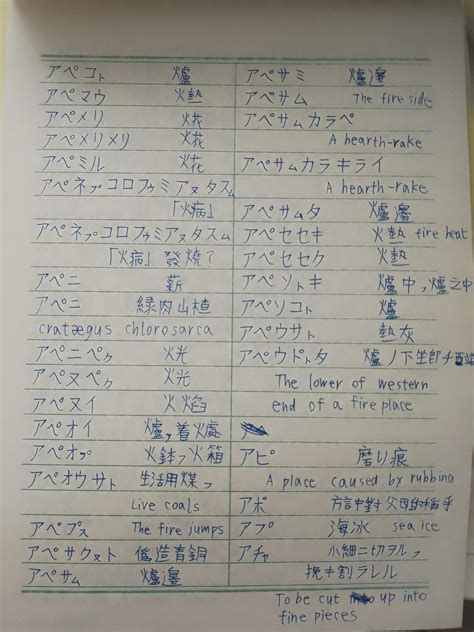 アペコㇳ 爐
アペマウ 火熱
アペメリ 火花
アペメリメリ 火花
アペミル 火花
アペネㇷ゚コロフㇺミアヌタスㇺ
「火病」
アペネㇷ゚コロフㇺミアヌタスㇺ
「火病」發燒?
アペニ 薪
アペニ 綠肉山楂
cratægus chlorosarca
アペニペㇰ 火光
アペヌペㇰ 火光
アペヌイ 火焰
アペオイ 爐,着火處
アペオㇷ゚ 火鉢,火箱
アペオウサㇳ 生活用煤?
Live coals
アペㇷ゚ス The fire jumps
アペサクㇲㇳ 偽造青銅
アペサㇺ 爐邊
アペサミ 爐邊
アペサム The fire side
アペサㇺカラペ
A hearth-rake
アペサㇺカラキライ
A hearth-rake
アペサㇺタ 爐邊
アペセセキ 火熱 fire heat
アペセセク 火熱
アペソㇳキ 爐中,爐之中
アペソコㇳ 爐
アペウサㇳ 熱灰
アペウㇳ゚ㇳタ 爐ノ下坐即チ西端
The lower of western
end of a fire place
アピ 磨り痕
A place caused by rubbing
アポ 方言中對父母的稱乎
アプ 海冰 sea ice
アチャ 小細ニ切ヲル,
挽キ割ラレル
To be cut up into
fine pieces